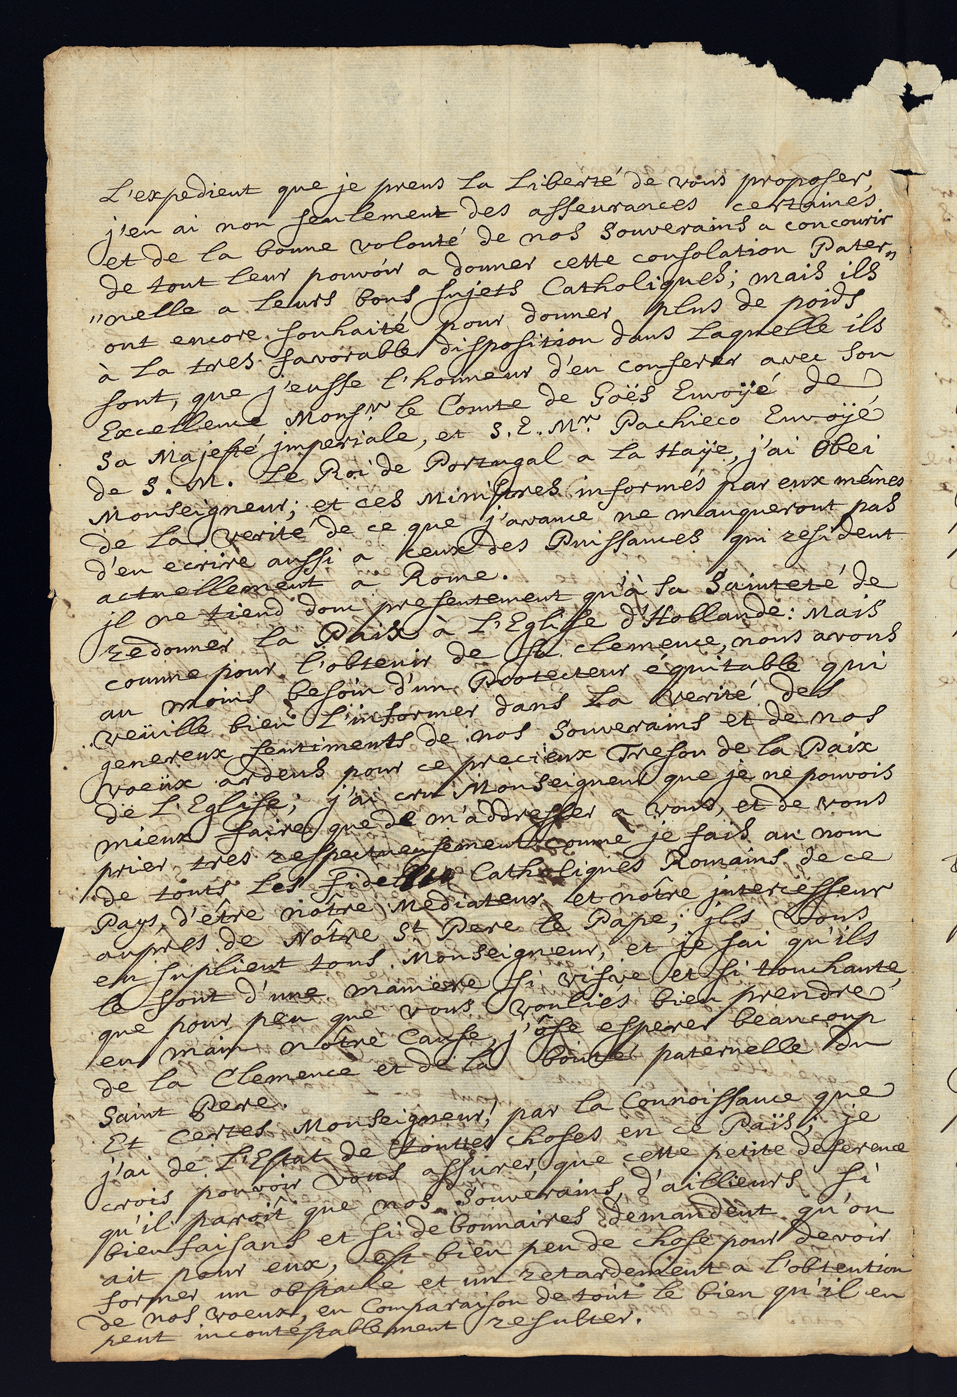 L'expedient que je prens La Liberté de vous proposer,
j'en ai non seulement des asseurances certaines
et de la bonne volonté de nos Souverains a concourir
de tout leur pouvoir a donner cette consolation Pater„
„nelle a Leurs bons sujets Catholiques; mais ils
ont encore souhaité pour donner plus de poids
à La tres favorable disposition dans Laquelle ils
sont, que j'eusse l'honneur d'en conferer avec Son
Excellence Monsr. le Comte de Goës Envoÿé de
Sa Majesté jmperiale, et S.E. Mr. Pachieco Envoÿé
de S. M. Le Roi de Portugal a La Haÿe, j'ai Obei
Monseigneur; et ces Ministres informés par eux mêmes
de La verité de ce que j'avance ne manqueront pas
d'en ecrire aussi a ceux des Puissances qui resident
actuellement à Rome.
jl ne tiend donc presentement qu'à Sa Sainteté de
redonner La Paix à L'Eglise d'Hollande: Mais
comme pour l'obtenir de sa clemence, nous avons
au moins besoin d'un Protecteur équitable qui
veüille bien L'informer dans La verité des
genereux sentiments de nos Souverains et de nos
voeüx ardens pour ce precieux Tresor de la Paix
de L'Eglise; j'ai cru Monseigneur que je ne pouvois
mieux faire que de m'addresser a vous, et de vous
prier tres respectueusement comme je fais au nom
de touts Les Catholiques Romains de ce
Pays, d'être nôtre Mediateur et nôtre jntercesseur
aupres de Nôtre St Pere le Pape; jls vous
en suplient tous Monseigneur, et je sai qu'ils
le font d'une maniere si visive et si touchante,
que pour peu que vous vouliés bien prendre
en main nôtre Cause, j'ôse esperer beaucoup
de la Clemence et de la bonté paternelle du
Saint Pere.
Et Certes Monseigneur! par la Connoissance que
j'ai de L'Estat de touttes choses en ce Païs, je
crois pouvoir vous assurer que cette petite deference
qu'il paroît que nos Souverains d'aillieurs si
bien faisans et si debonnaires demandent qu'on
ait pour eux, est bien peu de chose pour devoir
former un obstacle et un retardement a l'obtention
de nos voeux, en Comparaison de tout le bien qu'il en
peut incontestablement resulter.